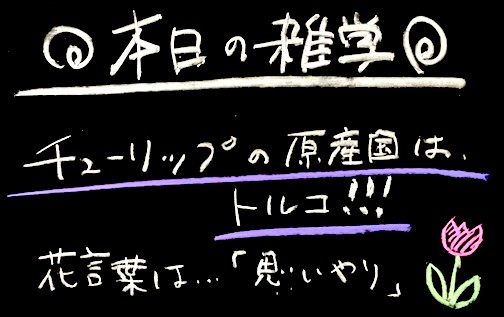 本日の雑学
チューリップの原産国は、
トルコ!!!
花言葉は…「思いやり」